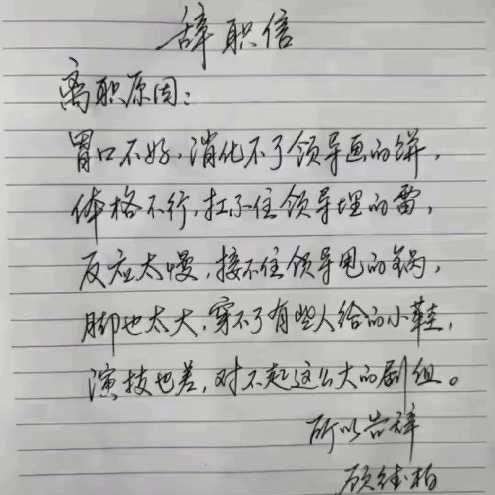 辞职信
离职原因:
胃口不好,消化不了领导画的饼,
体格不行,扛不住领导埋的雷,
反应太慢,接不住领导甩的锅,
脚也太大,穿不了有些人给的小鞋,
演技也差,对不起这么大的剧组。
所以告辞
顾